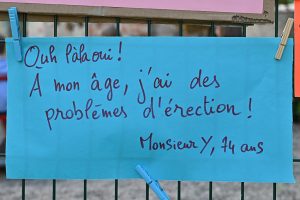 Ouh làlaoui !
A mon âge, j'ai des
problèmes d'érection !
Monsieur Y, 74 ans